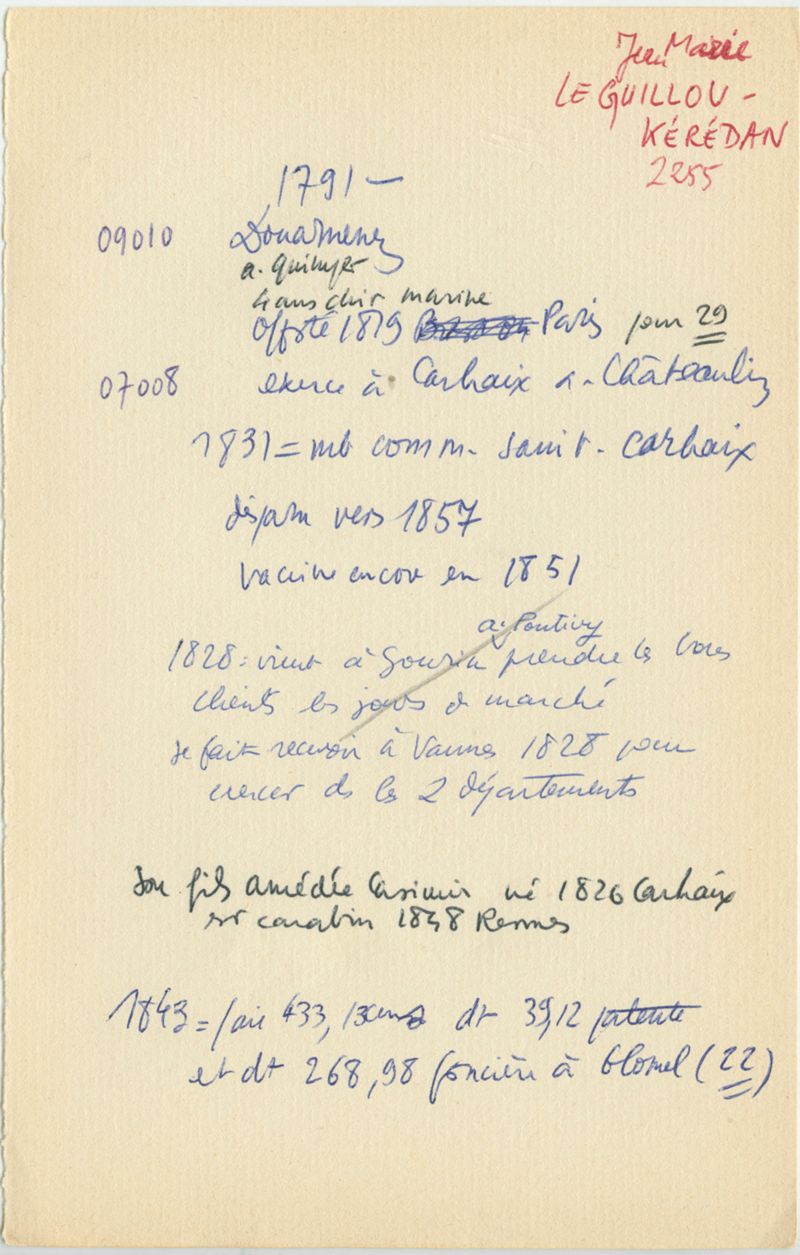 Jean Marie
LE GUILLOU -
KÉRÉDAN
2255
1791 -
09010 Douarnenez
a. Quimper
4 ans chir marine
Offsté 1819 Paris pour 29
07008 exerce à Carhaix a. Châteaulin
1831 = mb comm. sanit. Carhaix
disparu vers 1857
vaccine encore en 1851
a. Pontivy
1828 = vient à Gourin prendre les bons
clients les jours de marché
se fait recevoir à Vannes 1828 pour
exercer ds les 2 départements
Son fils Amédée Casimir né 1826 Carhaix
est carabin 1848 Rennes
1843 = paie 433, dt 39,12 patente
et dt 268,98 foncière à Glomel (22)